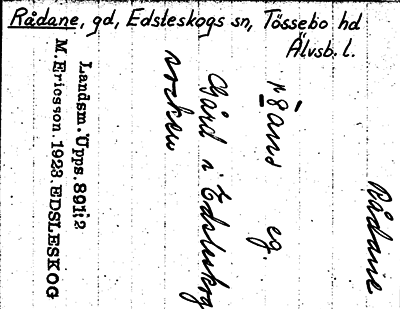 Rådane, gd, Edsleskogs sn, Tössebo hd
Älvsb. l.
Rådane
eg.
Gård i Edsleskog
socken
Landsm. Upps. 891:2
M. Ericsson. 1923. EDSLESKOG